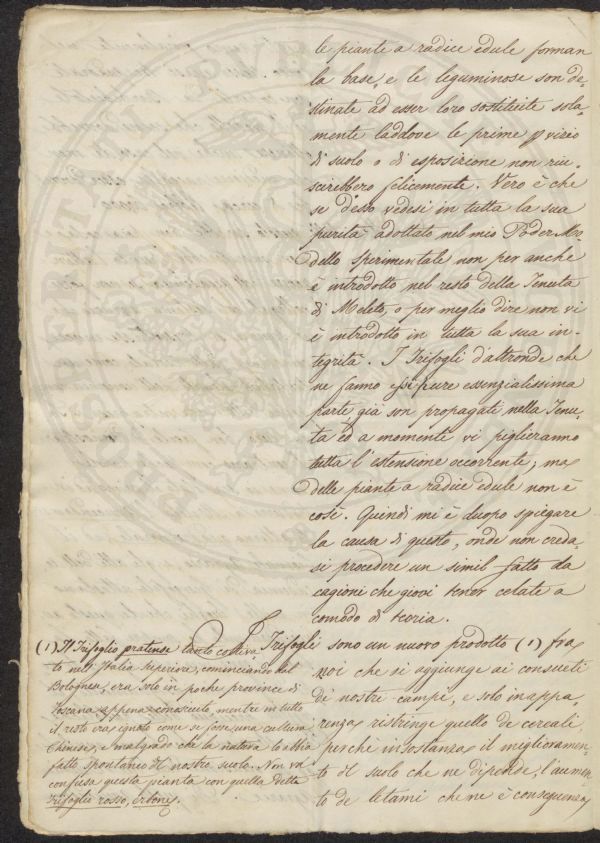 le piante a radice edule forman
la base, e le leguminose son de-
stinate ad esser loro sostituite sola-
mente laddove le prime p vizio
di suolo o di esposizione non riu-
scirebbero felicemente. Vero è che
se d'esso vedesi in tutta la sua
purità adottato nel mio Poder Mo-
dello sperimentale non per anche
è introdotto nel resto della Tenuta
di Meleto, o per meglio dire non vi
è introdotto in tutta la sua in-
tegrità. I Trifogli d'altronde che
ne fanno essi pure essenzialissima
parte già son propagati nella Tenu-
ta ed a momente vi piglieranno
tutta l'estensione occorrente, ma
delle piante a radice edule non è
così. Quindi mi è duopo spiegare
la causa di questo, onde non creda-
si procedere un simil fatto da
cagioni che giovi tener celate a
comodo di teoria.
I Trifogli sono un nuovo prodotto (1) fra
noi che si aggiunge ai consueti
di nostri campi, e solo in appa-
renza ristringe quello de cereali,
perchè in sostanza il miglioramen-
to del suolo che ne dipende, l'aumen-
to de letami che ne è conseguenza
(1) Il Trifoglio pratense tanto coltiva-
to nell'Italia superiore, cominciando dal
Bolognese, era solo in poche province di
Toscana appena conosciuto, mentre in tutto
il resto era ignoto come se fosse una cultura
Chinese, e malgrado che la natura lo abbia
fatto spontaneo del nostro suolo. Non va
confusa questa pianta con quella detta
Trifoglio rosso, Erbone.
PVBLICO
PROSPERITATI